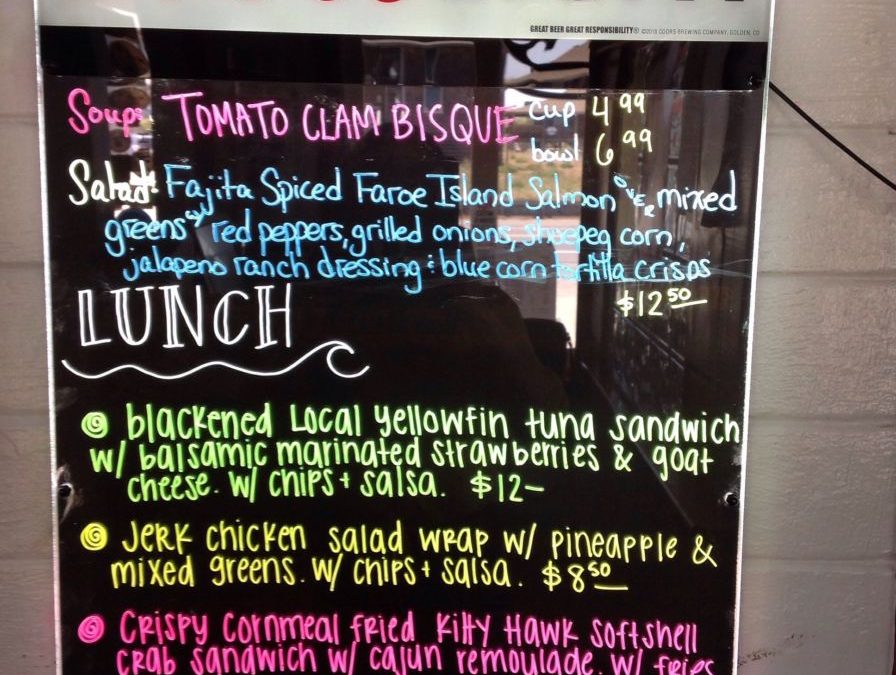 GREAT BEER GREAT RESPONSIBILITY® ©2013 COORS BREWING COMPANY, GOLDEN, CO
Soup: TOMATO CLAM BISQUE cup 4.99
bowl 6.99
Salad: Fajita Spiced Faroe Island Salmon OVER mixed
greens w/ red peppers, grilled onions, shoepeg corn,
jalapeno ranch dressing & blue corn tortilla crisps
$12.50
LUNCH
blackened Local yellowfin tuna sandwich
w/ balsamic marinated strawberries & goat
cheese. w/ chips + salsa. $12-
Jerk chicken salad wrap w/ pineapple &
mixed greens. w/ chips + salsa. $8.50
Crispy cornmeal fried Kitty Hawk softshell
crab sandwich w/ cajun remoulade. w/ fries